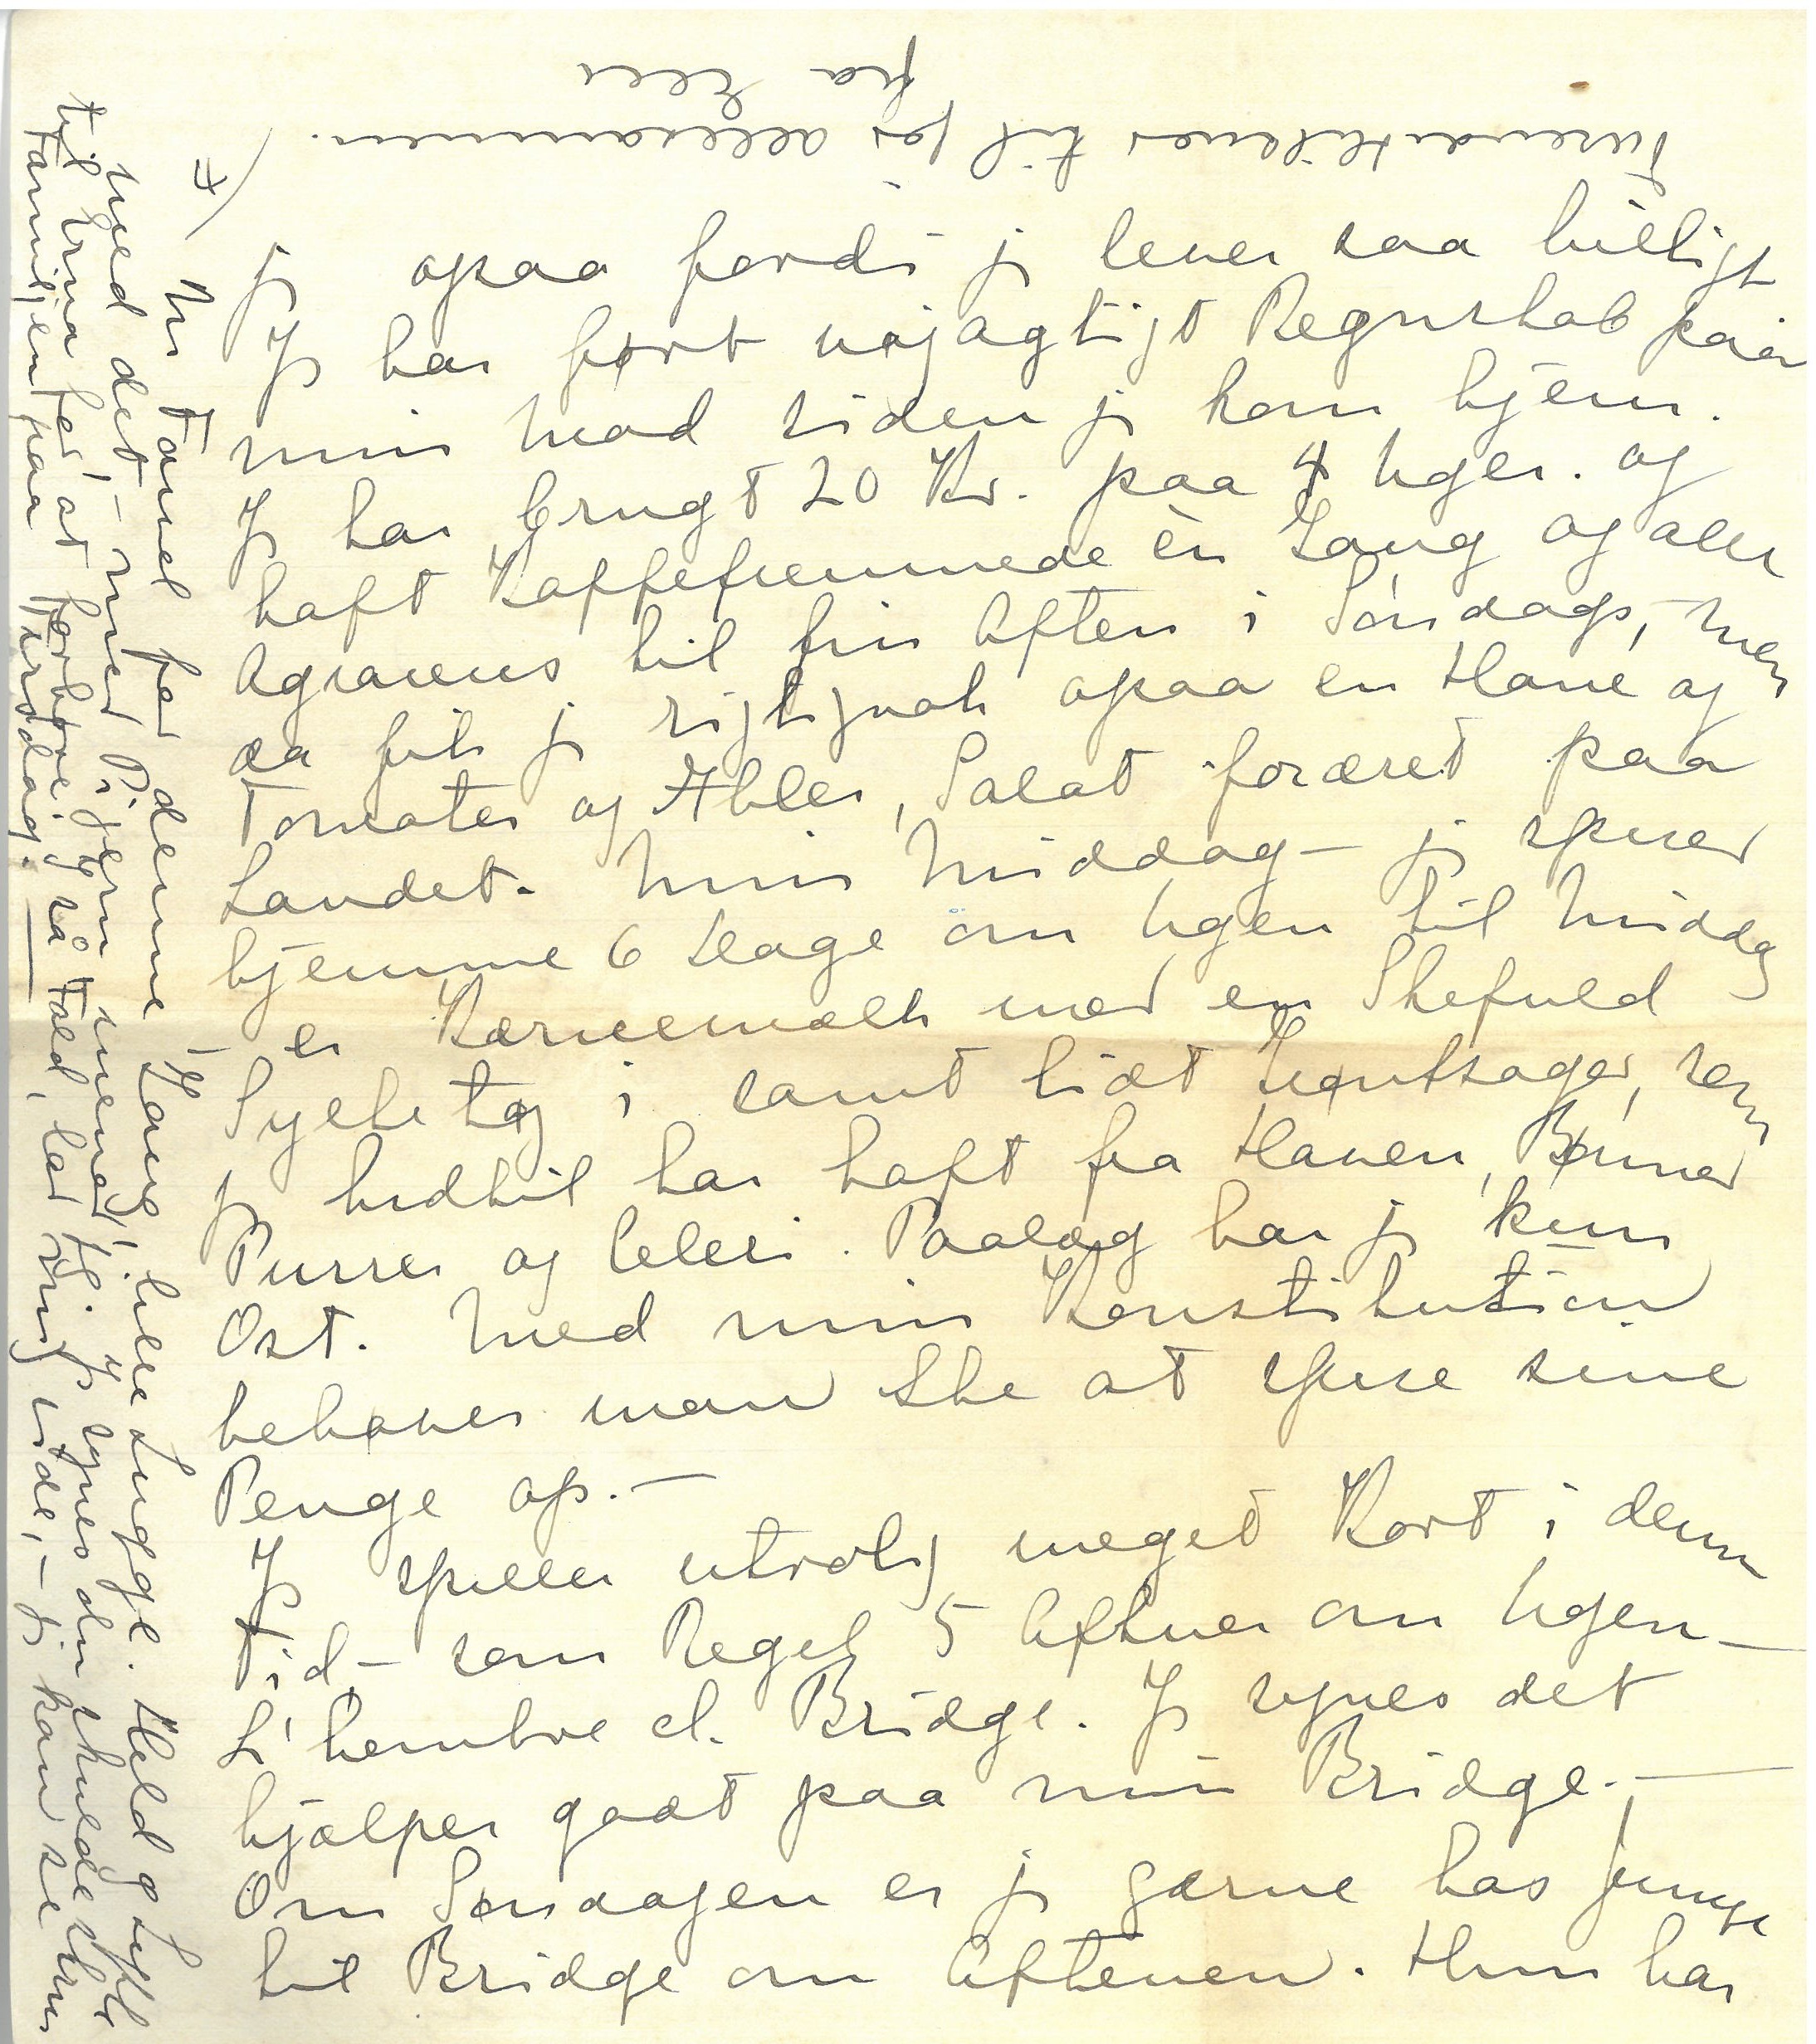 4)
jg ogsaa fordi jg lever saa billigt
Jg har ført nøjagtigt Regnskab paa
min Mad siden jg kom hjem.
Jg har brugt 20 Kr. paa 4 Uger. og
haft Kaffefremmede èn Gang og alle
Agrarens til fin Aften i Søndags, men
da fik jg rigtignok ogsaa en Hane og
Tomater og Æbler, Salat foræret paa
Landet. Min Middag – jg spiser
hjemme 6 Dage om Ugen til Middag
er Kærnemælk med en Skefuld
Syltetøj i samt lidt Grøntsager, som
jg hidtil har haft fra Haven, Bønner
Purrer og Celeri. Paalæg har jg kun
Ost. Med min Konstitution
behøver man Ikke at spise sine
Penge op. –
Jg spiller utrolig meget Kort i denne
Tid, – som Regel 5 Aftner om Ugen –
L'hombre el. Bridge. Jg synes det
hjælper godt paa min Bridge. –
Om Søndagen er jg gærne hos Junge
til Bridge om Aftenen. Hun har
Nu Farvel for denne Gang, lille Lugge. Held og Lykke
med det, – med Pigerne mener! Jg synes du skulde skr
til Erna for at forhøre jg så Fald, lad mig vide, – jg kan se Erna
Familjen paa Tirsdag.
Tusende Hilsner til jer allesammen.
fra Elle